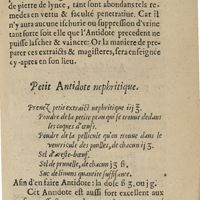 de pierre de lynce, tant sont abondans tels re-
medes en vertu & faculté penetratiue. Car il
n'y aura aucune ischurie ou suppression d'vrine
tant forte soit elle que l'Antidote precedent ne
puisse lascher & vaincre: Or la maniere de pre-
parer ces extraicts & magisteres, sera enseignee
cy-apres en son lieu.
Petit Antidote nephritique.
Prenez petit extraict nephritique iij ʒ.
Poudre de la petite peau qui se trouue dedans
les coques d'œufs.
Poudre de la pellicule qu'on trouue dans le
ventricule des poulles, de chacun ij ʒ.
Sel d'areste-bœuf.
Sel de prunelle, de chacun ʒ ß.
Suc de limons quantité suffisante.
Afin d'en faire Antidote: la dose ß ʒ, ou j ʒ.
Cet Antidote est aussi fort excellent aux